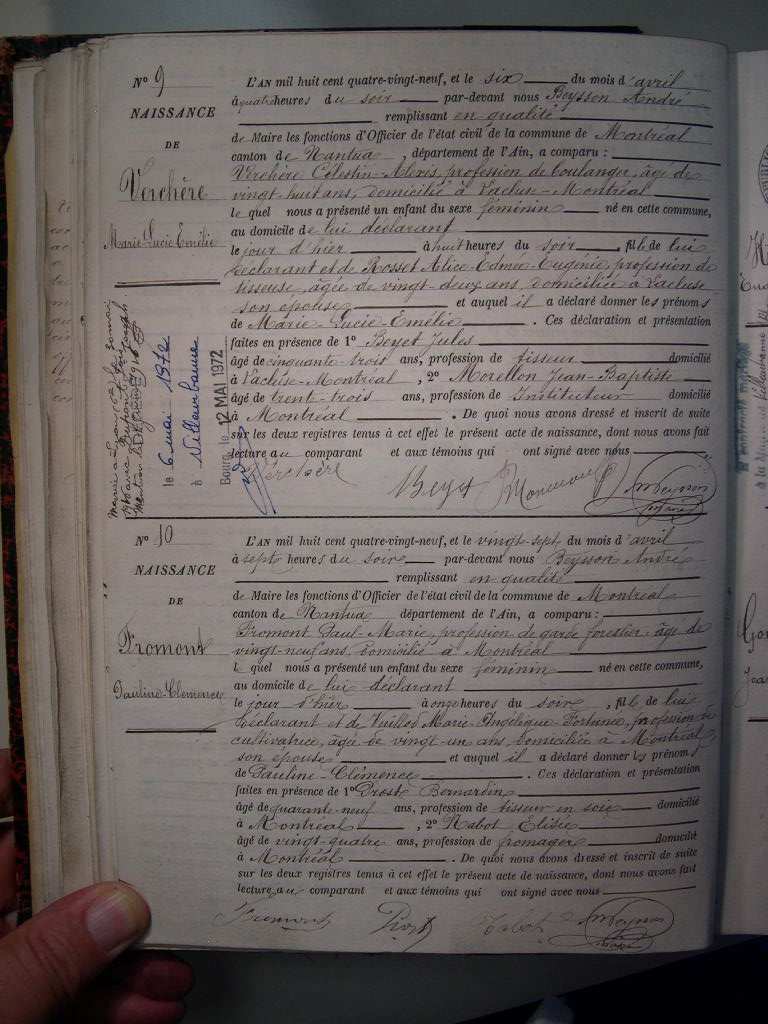 N° 9
NAISSANCE
DE
Verchère
Marie-Lucie Emélie
L'AN mil huit cent quatre-vingt-neuf, et le six du mois d'avril
à quatre heures du soir par-devant nous Beysson André
remplissant en qualité
de Maire les fonctions d'Officier de l'état civil de la commune de Montréal
canton de Nantua, département de l'Ain, a comparu :
Verchère Célestin-Alexis, profession de boulanger, âgé de
vingt-huit ans, domicilié à Lacluse-Montréal
le quel nous a présenté un enfant du sexe féminin né en cette commune,
au domicile de lui déclarant
le jour d'hier à huit heures du soir, fille de lui
déclarant et de Rosset Alice-Edmée-Eugénie, profession de
tisseuse, âgée de vingt-deux ans, domiciliée à Lacluse
son épouse et auquel il a déclaré donner les prénoms
de Marie-Lucie-Emélie. Ces déclaration et présentation
faites en présence de 1° Beyet Jules
âgé de cinquante-trois ans, profession de tisseur domicilié
à Lacluse-Montréal, 2° Morellon Jean-Baptiste
âgé de trent-trois ans, profession de Instituteur domicilié
à Montréal. De quoi nous avons dressé et inscrit de suite
sur les deux registres tenus à cet effet le présent acte de naissance, dont nous avons fait
lecture au comparant et aux témoins qui ont signé avec nous
Verchère Beyet AnBeysson
maire
le 6 mai 1972
à Villeurbanne
Bourg, le 12 MAI 1972
N° 10
NAISSANCE
DE
Fromont
Pauline-Clémence
L'AN mil huit cent quatre-vingt-neuf, et le vingt-sept du mois d'avril
à sept heures du soir par-devant nous Beysson André
remplissant en qualité
de Maire les fonctions d'Officier de l'état civil de la commune de Montréal
canton de Nantua département de l'Ain, a comparu :
Fromont Paul-Marie, profession de garde forestier, âgé de
vingt-neuf ans, domicilié à Montréal
le quel nous a présenté un enfant du sexe féminin né en cette commune,
au domicile de lui déclarant
le jour d'hier à onze heures du soir, fille de lui
déclarant et de Vuillod Marie-Angélique-Fortunée, profession de
cultivatrice, âgée de vingt-un ans domiciliée à Montréal,
son épouse et auquel il a déclaré donner les prénoms
de Pauline-Clémence. Ces déclaration et présentation
faites en présence de 1° Prost Bernardin
âgé de quarante-neuf ans, profession de tisseur en soie domicilié
à Montréal, 2° Nabot Elisée
âgé de vingt-quatre ans, profession de fromager domicilié
à Montréal. De quoi nous avons dressé et inscrit de suite
sur les deux registres tenus à cet effet le présent acte de naissance, dont nous avons fait
lecture au comparant et aux témoins qui ont signé avec nous
Fromont Prost Nabot AnBeysson
maire